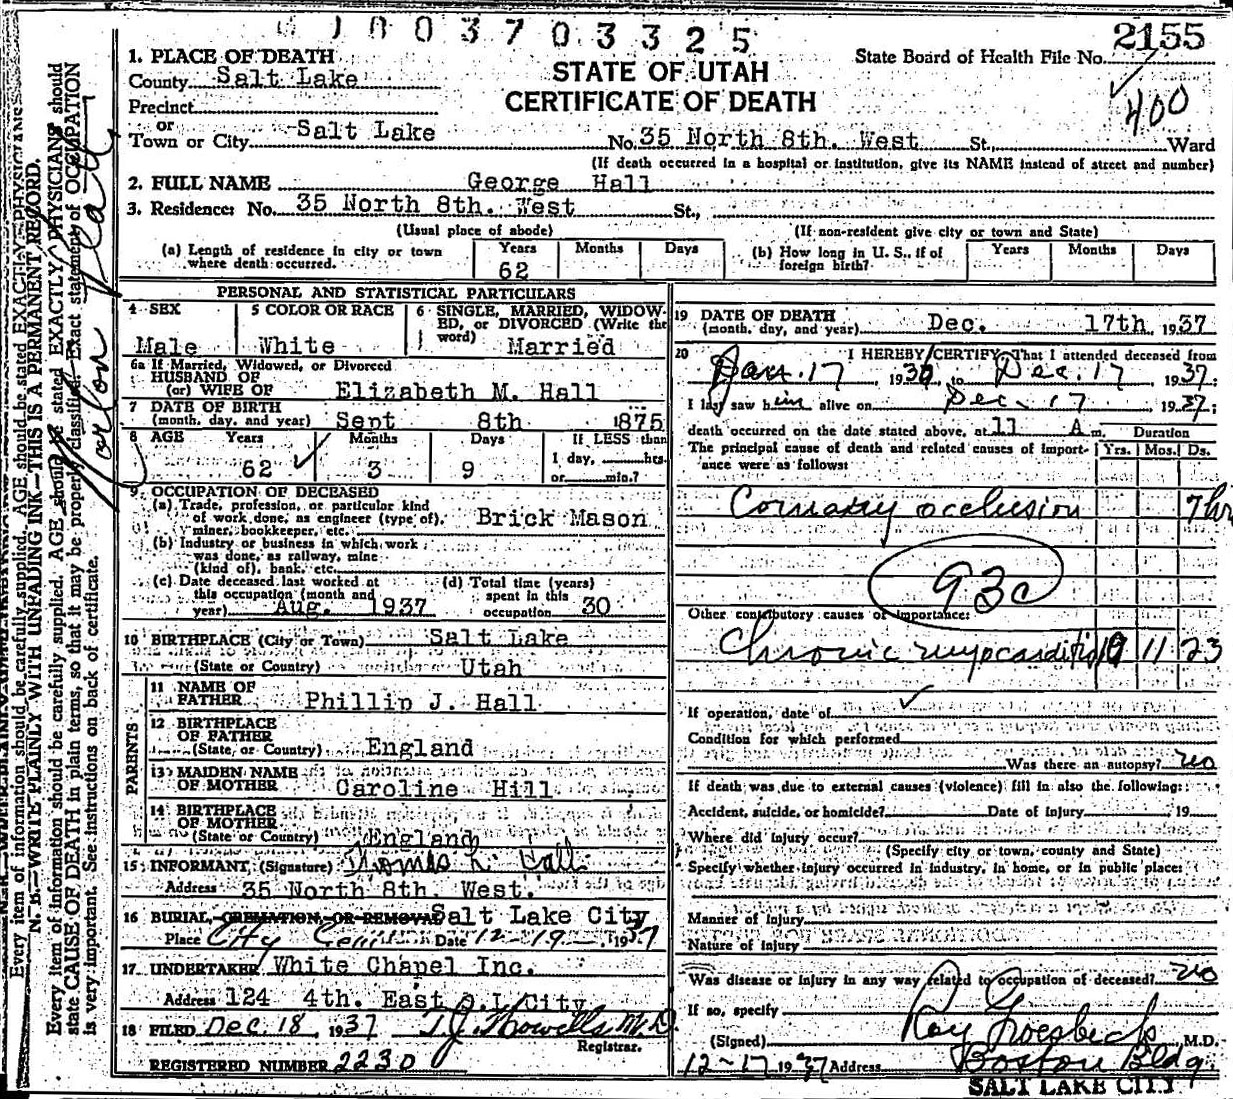 1003703325
2155
State Board of Health File No.
400
STATE OF UTAH
CERTIFICATE OF DEATH
1. PLACE OF DEATH
County Salt Lake
Precinct
or
Town or City Salt Lake No. 35 North 8th. West St., Ward
(If death occurred in a hospital or institution, give its NAME instead of street and number)
2. FULL NAME George Hall
3. Residence: No. 35 North 8th. West St.,
(Usual place of abode) (If non-resident give city or town and State)
(a) Length of residence in city or town where death occurred. Years 62 Months Days
(b) How long in U. S., if of foreign birth? Years Months Days
PERSONAL AND STATISTICAL PARTICULARS
4 SEX Male
5 COLOR OR RACE White
6 SINGLE, MARRIED, WIDOWED, or DIVORCED (Write the word) Married
6a If Married, Widowed, or Divorced
HUSBAND OF
(or) WIFE OF Elizabeth M. Hall
7 DATE OF BIRTH
(month, day, and year) Sept 8th 1875
8 AGE Years 62 Months 3 Days 9 If LESS than 1 day, hrs. or min.?
9. OCCUPATION OF DECEASED
(a) Trade, profession, or particular kind
of work done, as engineer (type of),
miner, bookkeeper, etc. Brick Mason
(b) Industry or business in which work
was done, as railway, mine
(kind of), bank, etc.
(c) Date deceased last worked at
this occupation (month and
year) Aug. 1937
(d) Total time (years)
spent in this
occupation 30
10 BIRTHPLACE (City or Town) Salt Lake
(State or Country) Utah
PARENTS
11 NAME OF
FATHER Phillip J. Hall
12 BIRTHPLACE
OF FATHER
(State, or Country) England
13 MAIDEN NAME
OF MOTHER Caroline Hill
14 BIRTHPLACE
OF MOTHER
(State or Country) England
15 INFORMANT, (Signature) Thomas L. Hall
Address 35 North 8th. West.
16 BURIAL, CREMATION, OR REMOVAL Salt Lake City
Place City Date 12-19- 1937
17 UNDERTAKER White Chapel Inc.
Address 124 4th. East S.L. City
18 FILED Dec 18, 1937 T.J. Howells M.D.
Registrar.
REGISTERED NUMBER 2230
19 DATE OF DEATH
(month, day, and year) Dec. 17th 1937
20 I HEREBY CERTIFY, That I attended deceased from
Jan. 17, 1936, to Dec. 17, 1937;
I last saw him alive on Dec. 17, 1937;
death occurred on the date stated above, at 11 A m. Duration
The principal cause of death and related causes of importance were as follows: Yrs. Mos. Ds.
Coronary occlusion 7 hrs
93c
Other contributory causes of importance:
Chronic myocarditis 11 23
If operation, date of
Condition for which performed
Was there an autopsy? no
If death was due to external causes (violence) fill in also the following:
Accident, suicide, or homicide? Date of Injury 19
Where did injury occur?
(Specify city or town, county and State)
Specify whether injury occurred in industry, in home, or in public place:
Manner of Injury
Nature of Injury
Was disease or injury in any way related to occupation of deceased? no
If so, specify
(Signed) Ray Groesbeck, M.D.
12-17 1937 Address Boston Bldg.
SALT LAKE CITY
N. B.—WRITE PLAINLY WITH UNFADING INK—THIS IS A PERMANENT RECORD.
Every item of information should be carefully supplied. AGE should be stated EXACTLY. PHYSICIANS should
state CAUSE OF DEATH in plain terms, so that it may be properly classified. Exact statement of OCCUPATION
is very important. See instructions on back of certificate.